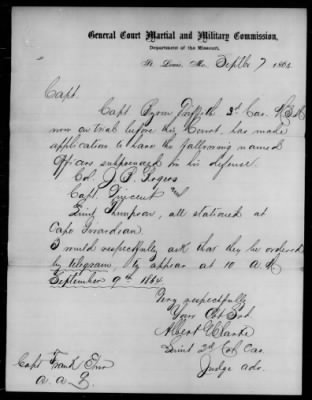 General Court Martial and Military Commission,
Department of the Missouri,
St. Louis, Mo. Septbr 7 1864
Capt.
Capt Byron Griffith 3d Cav. M.S.M
now on trial before this Court. has made
application to have the following named
Officers suspoenaed in his defense.
Col. J. B. Rogers
Capt Vincent and
Lieut Thompson, all stationed at
Cape Girardeau.
I would respectfully ask that they be ordered
by telegram, to appear at 10 A.M.
September 9th 1864
Very respectfully
Your Obt Svt
Albert Clarke
Lieut 2d Col Cav.
Judge Adv.
Capt Frank Eno
A. A. G.